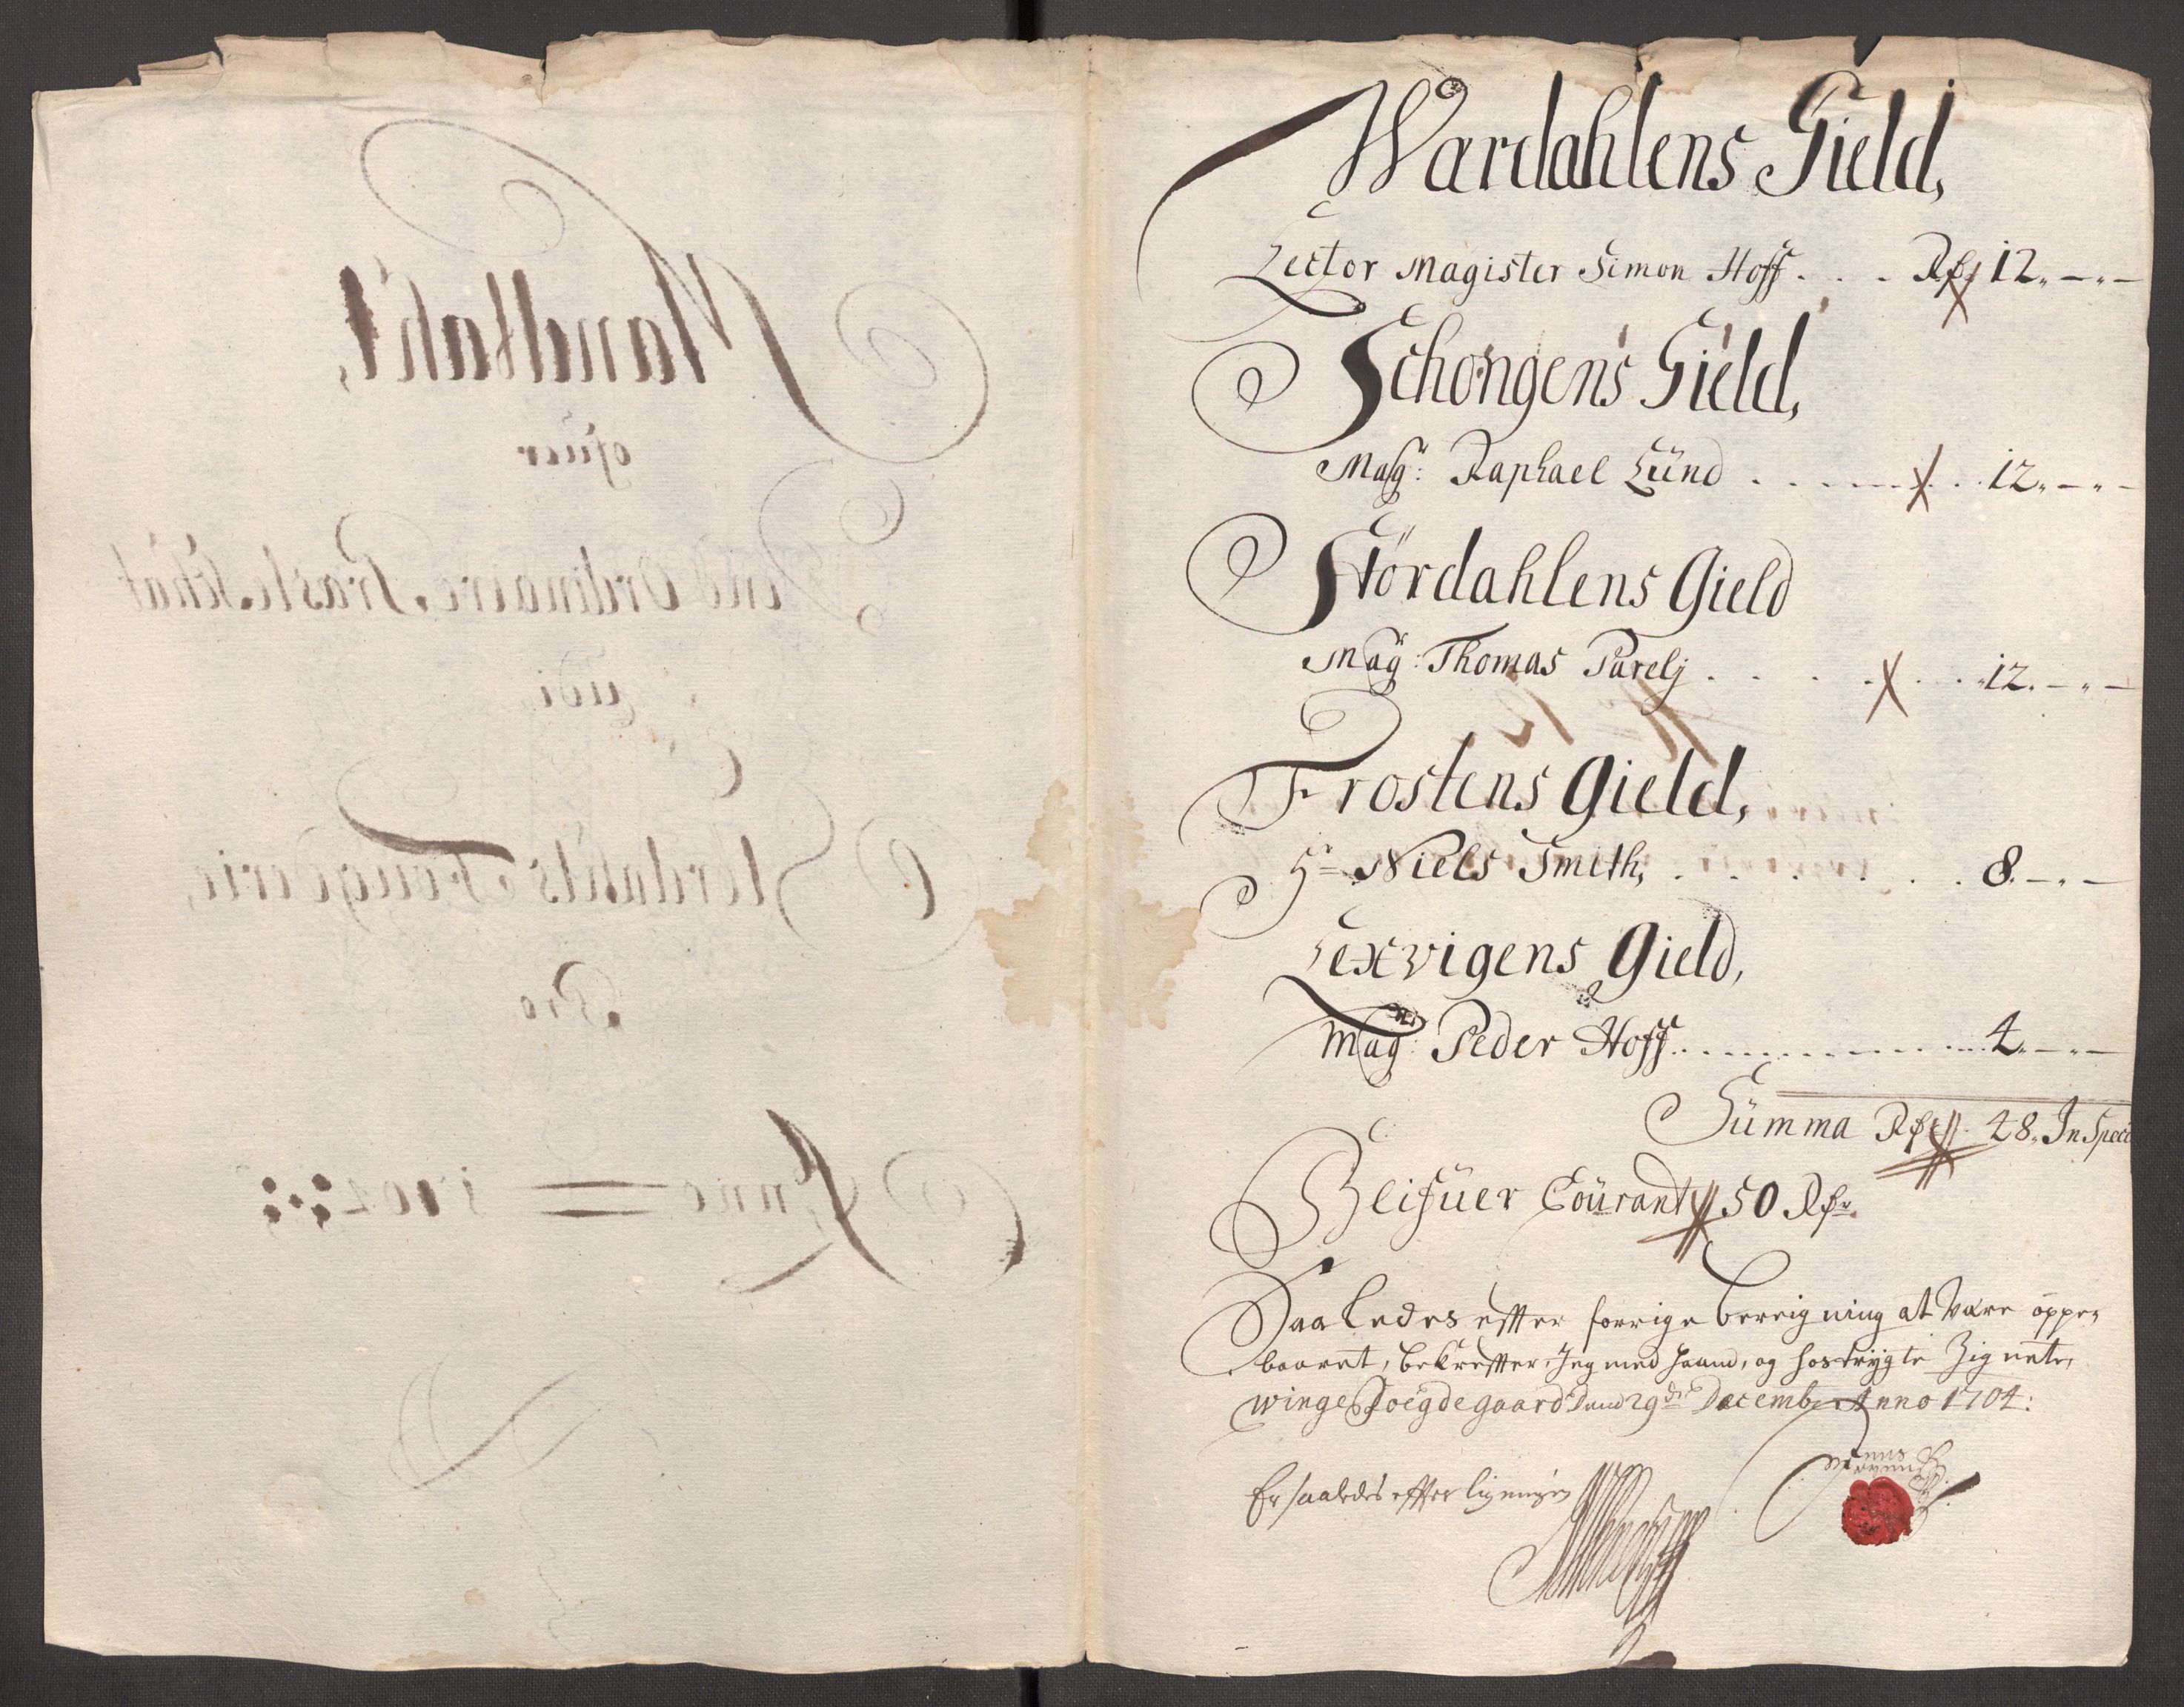 Mandtahl,
ofuer
Dend Ordinaire Præste Schat
udi
Størdahls Fougderie,
Pro
Anno 1704
Wardahlens Gield,
Lector Magister Simon Hoff. . . Rdr 12 " — " —
Schongens Gield,
Magr: Raphael Lünd . . . . . . 12 " — " —
Størdahlens Gield
Mag: Thomas Parelj . . . . . . 12. — " —
Frostens Gield,
Hr Niels Smith, . . . . . . . 8. — " —
Lexvigens Gield,
Mag: Peder Hoff . . . . . . . 4. — " —
Summa Rdr 48. In Speci
Bleifuer Courant 50 Rdr.
Saaledes effter forrige bereigning at være oppe-
baaret, bekreffter Jeg med Haand, og hostrygte Zignete,
Winge Foegdegaard Dend 29de December Anno 1704:
Er saaledes effter ligningen